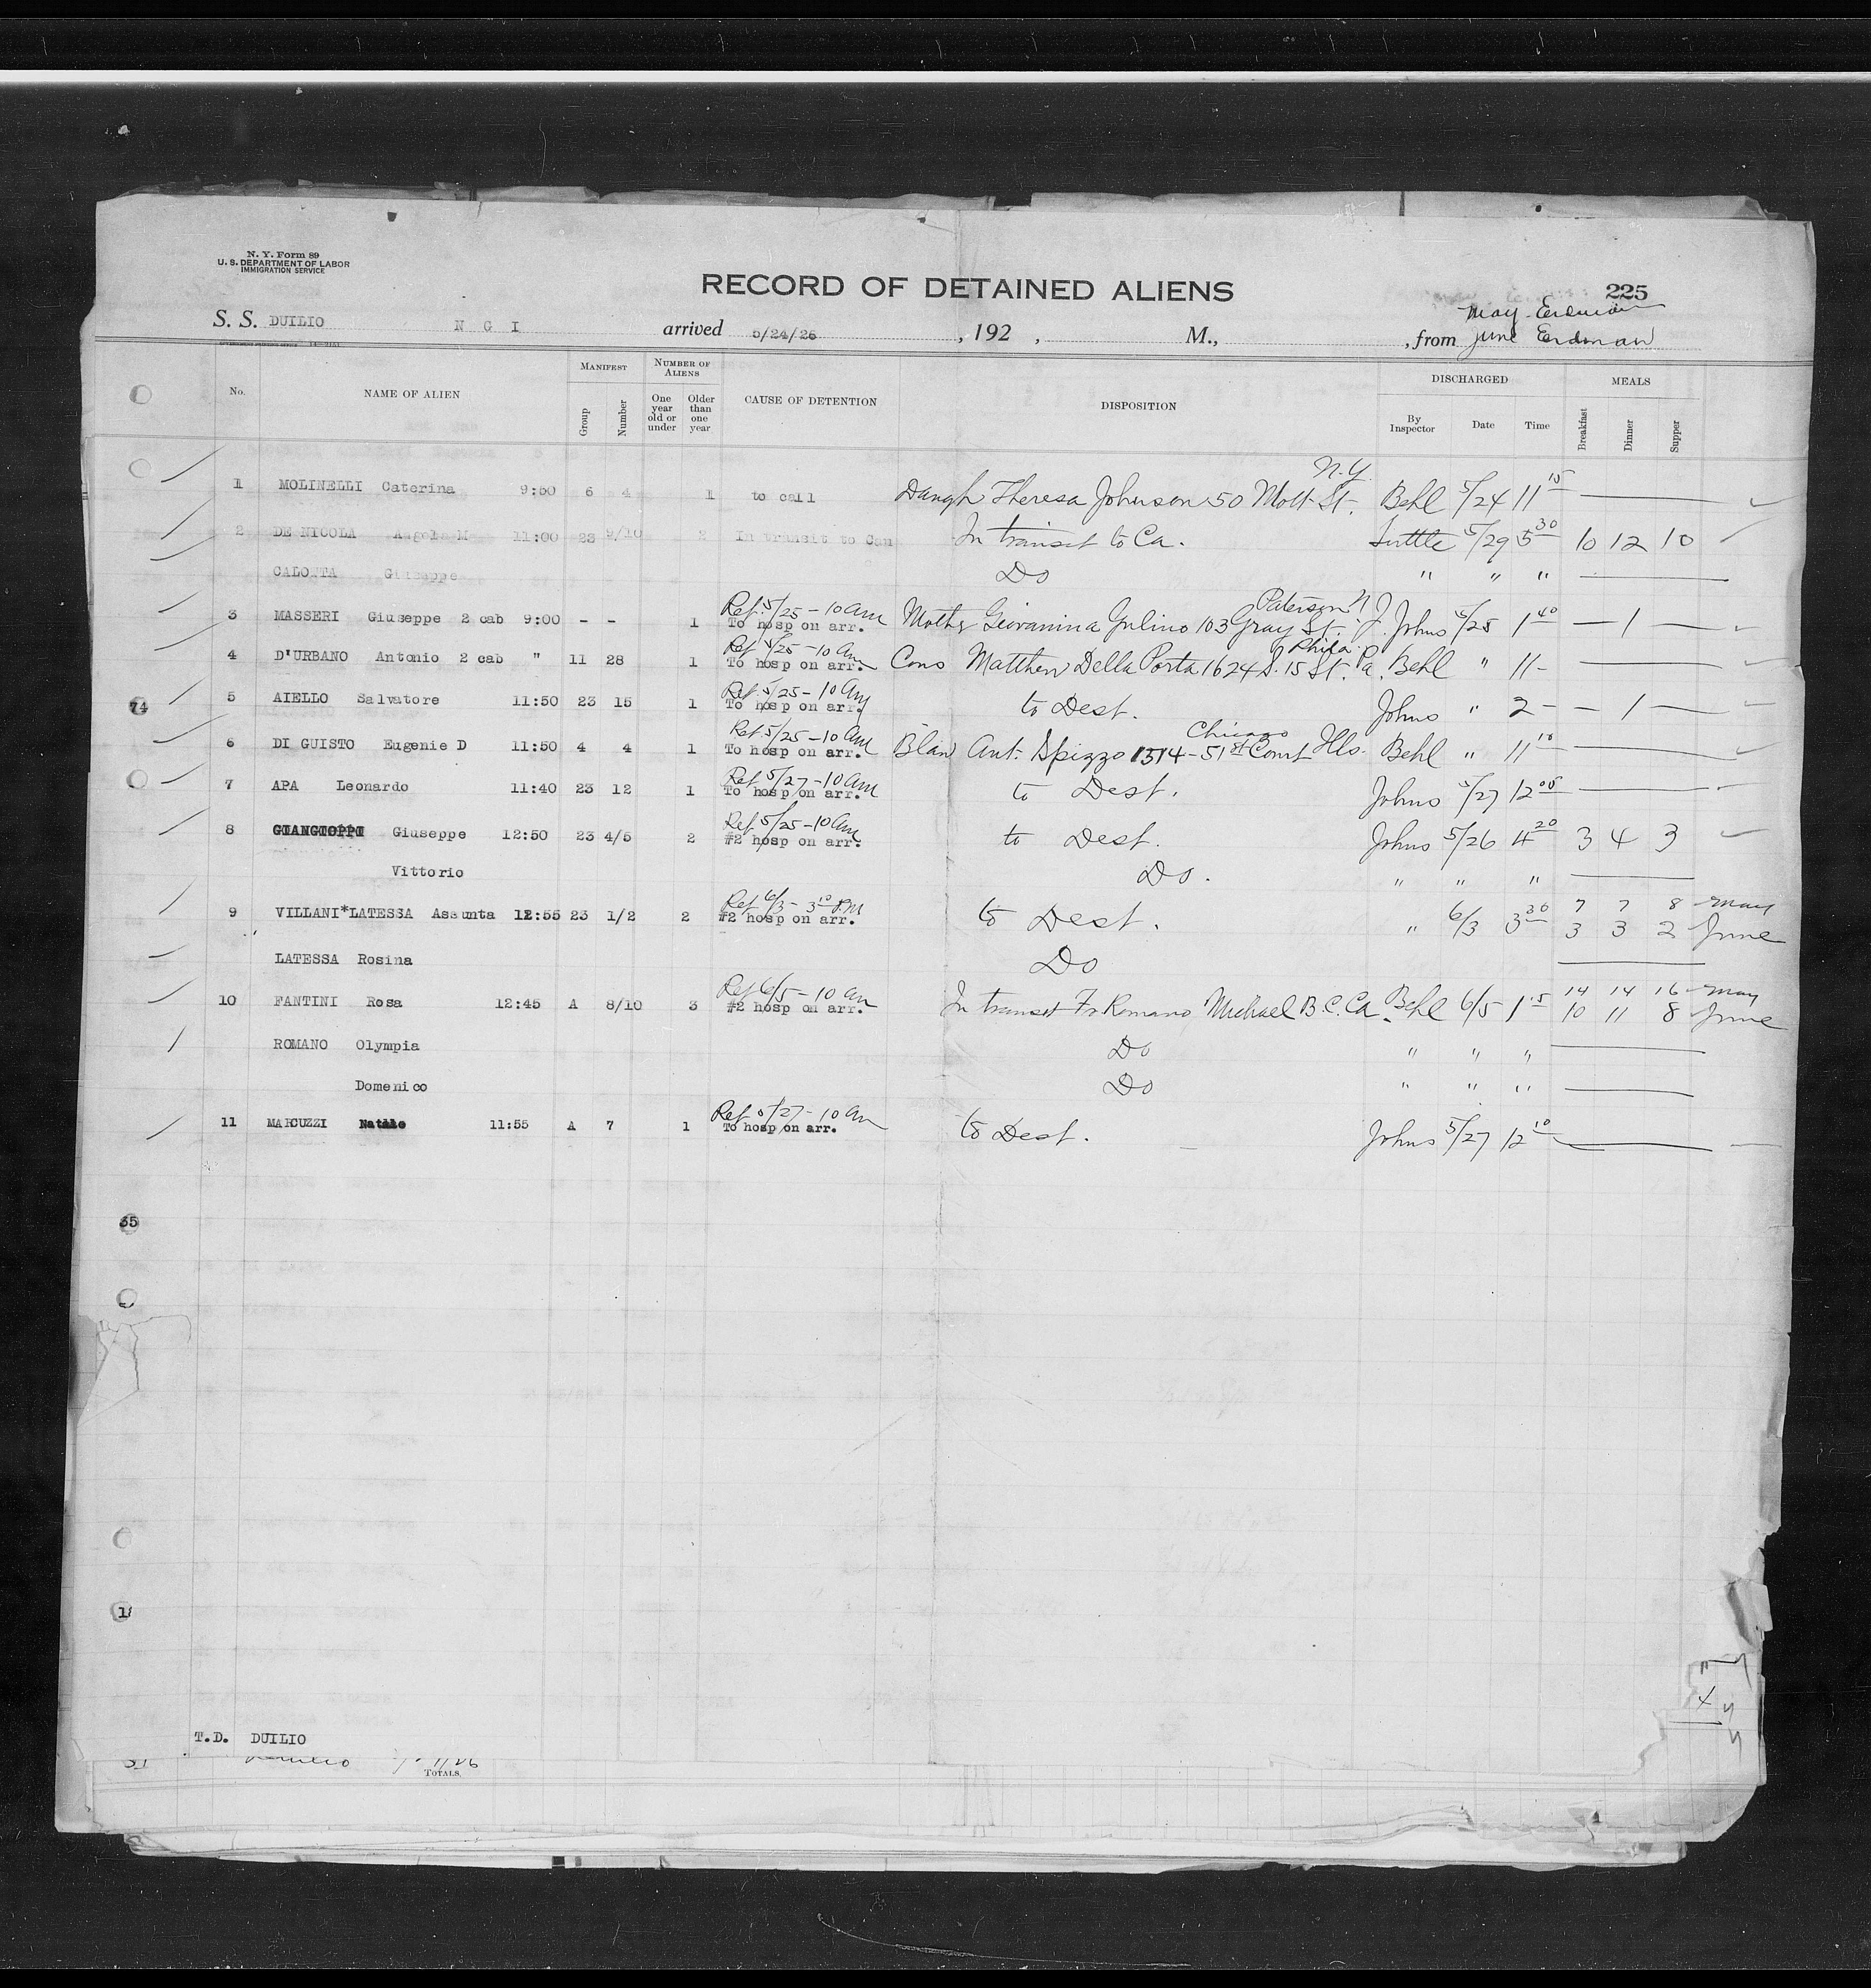 N. Y. Form 89
U. S. DEPARTMENT OF LABOR
IMMIGRATION SERVICE
RECORD OF DETAINED ALIENS
225
May - Erdman
S. S. DUILIO N G I arrived 5/24/26, 192 , M., , from June Erdman
No. NAME OF ALIEN MANIFEST Group Number NUMBER OF ALIENS One year old or under Older than one year CAUSE OF DETENTION DISPOSITION DISCHARGED By Inspector Date Time MEALS Breakfast Dinner Supper
N.Y.
1 MOLINELLI Caterina 9:50 6 4 1 to call Daugh Theresa Johnson 50 Mott St. Behl 5/24 11 15
2 DE NICOLA Angela M 11:00 23 9/10 2 In transit to Can In transit to Ca. Tuttle 5/29 5 30 10 12 10
CALOTTA Giuseppe Do " " "
Ret 5/25 - 10 am Paterson N.J.
3 MASSERI Giuseppe 2 cab 9:00 - - 1 To hosp on arr. Mother Giovannina Gulino 103 Gray St. Johns 5/25 1 40 — 1 —
Ret 5/25 - 10 am Phila
4 D'URBANO Antonio 2 cab " 11 28 1 To hosp on arr. Cons Matthew Della Porta 1624 S. 15 St. Pa. Behl " 11-
Ret 5/25 - 10 am
5 AIELLO Salvatore 11:50 23 15 1 To hosp on arr. to Dest. Johns " 2- — 1 —
Ret 5/25 - 10 am Chicago
6 DI GUISTO Eugenie D 11:50 4 4 1 To hosp on arr. Blaw Ant. Spizzo 1314 - 51st Court Ills. Behl " 11 10
Ret 5/27 - 10 am
7 APA Leonardo 11:40 23 12 1 To hosp on arr. to Dest. Johns 5/27 12 05
Ret 5/25 - 10 am
8 Giuseppe 12:50 23 4/5 2 #2 hosp on arr. to Dest. Johns 5/26 4 20 3 4 3
Vittorio Do. " " "
Ret 6/3 - 3 10 PM 7 7 8 - May
9 VILLANI*LATESSA Assunta 12:55 23 1/2 2 #2 hosp on arr. to Dest. " 6/3 3 30 3 3 2 June
LATESSA Rosina Do
Ret 6/5 - 10 am 14 14 16 - May
10 FANTINI Rosa 12:45 A 8/10 3 #2 hosp on arr. In transit Fr Romano Michael B.C. Ca. Behl 6/5 1 15 10 11 8 June
ROMANO Olympia Do " " "
Domenico Do " " "
Ret 5/27 - 10 am
11 MARCUZZI Natale 11:55 A 7 1 To hosp on arr. to Dest. Johns 5/27 12 10
74
35
T.D. DUILIO
TOTALS,